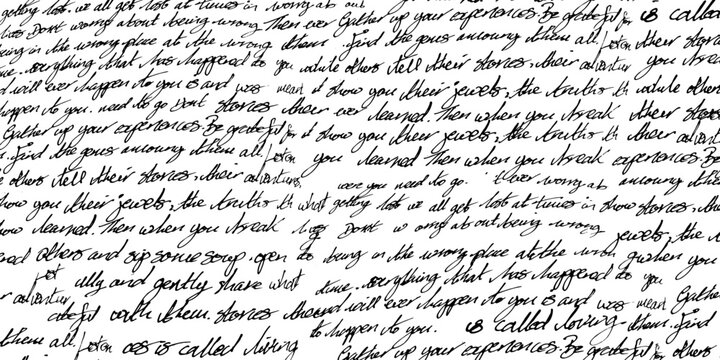 getting lost. we all get lost at times in worry about
has Don't worry about being wrong Then ever Gather up your experiences. Be grateful for is called
being in the wrong place at the wrong them. Find the gems among them all. listen their stories
time. everything that has happened to you while others tell their stories, their adventur you break
d will ever happen to you is and was meant it show you their jewels, the truths th while others
happen to you. need to go Don't stories their ever learned. Then when you break their stories
Gather up your experiences. Be grateful for it show you their jewels, the truths th their adventur
s. Find the gems among them all. listen you learned. Then when you break experiences. Be
e others tell their stories, their adventures, were you need to go. Ever worry ab among them
show you their jewels, the truths th what getting lost we all get lost at times in show stories,
how learned. Then when you break has Don't w omg about being wrong jewels, the
ered others and sip some soup. open do being in the wrong place at the wron when you
ully and gently share what time. everything that has happened to you
r adventur ateful with them. stories thround will ever happen to you is and was mean Gather
them all. listen as is called living to happen to you. is called living. them. Find
Gather up your experiences. Be grateful for others